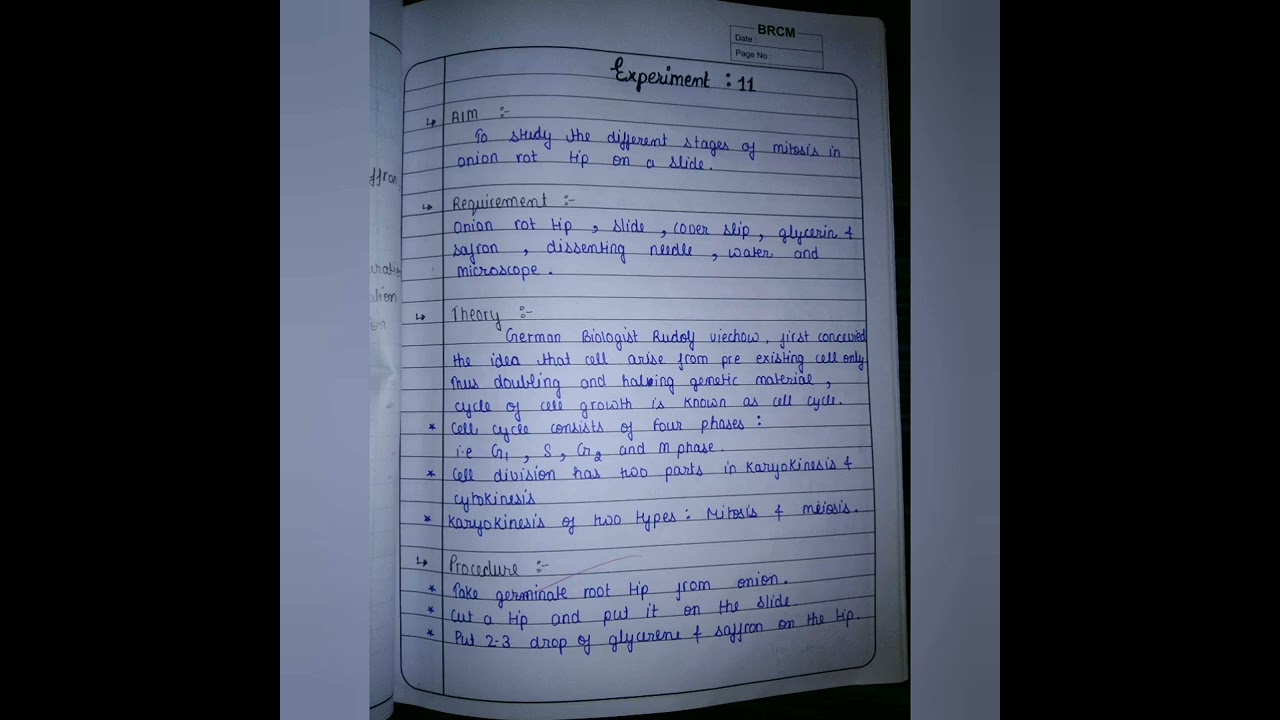 BRCM
Date :
Page No :
Experiment : 11
↳ AIM :-
To study the different stages of mitosis in
onion rot tip on a slide.
↳ Requirement :-
onion rot tip , slide , cover slip , glycerin &
safron , dissenting needle , water and
microscope .
↳ Theory :-
German Biologist Rudolf viechow, first concevied
the idea that cell arise from pre existing cell only
thus doubling and halving genetic material ,
cycle of cell growth is known as cell cycle.
* Cell cycle consists of four phases :
i.e G1 , S , G2 and M phase .
* Cell division has two parts in Karyokinesis &
cytokinesis
* Karyokinesis of two types : Mitosis & meiosis .
↳ Procedure :-
* Take germinate root tip from onion .
* Cut a tip and put it on the slide
* Put 2-3 drop of glycerene & saffron on the tip .
ffron